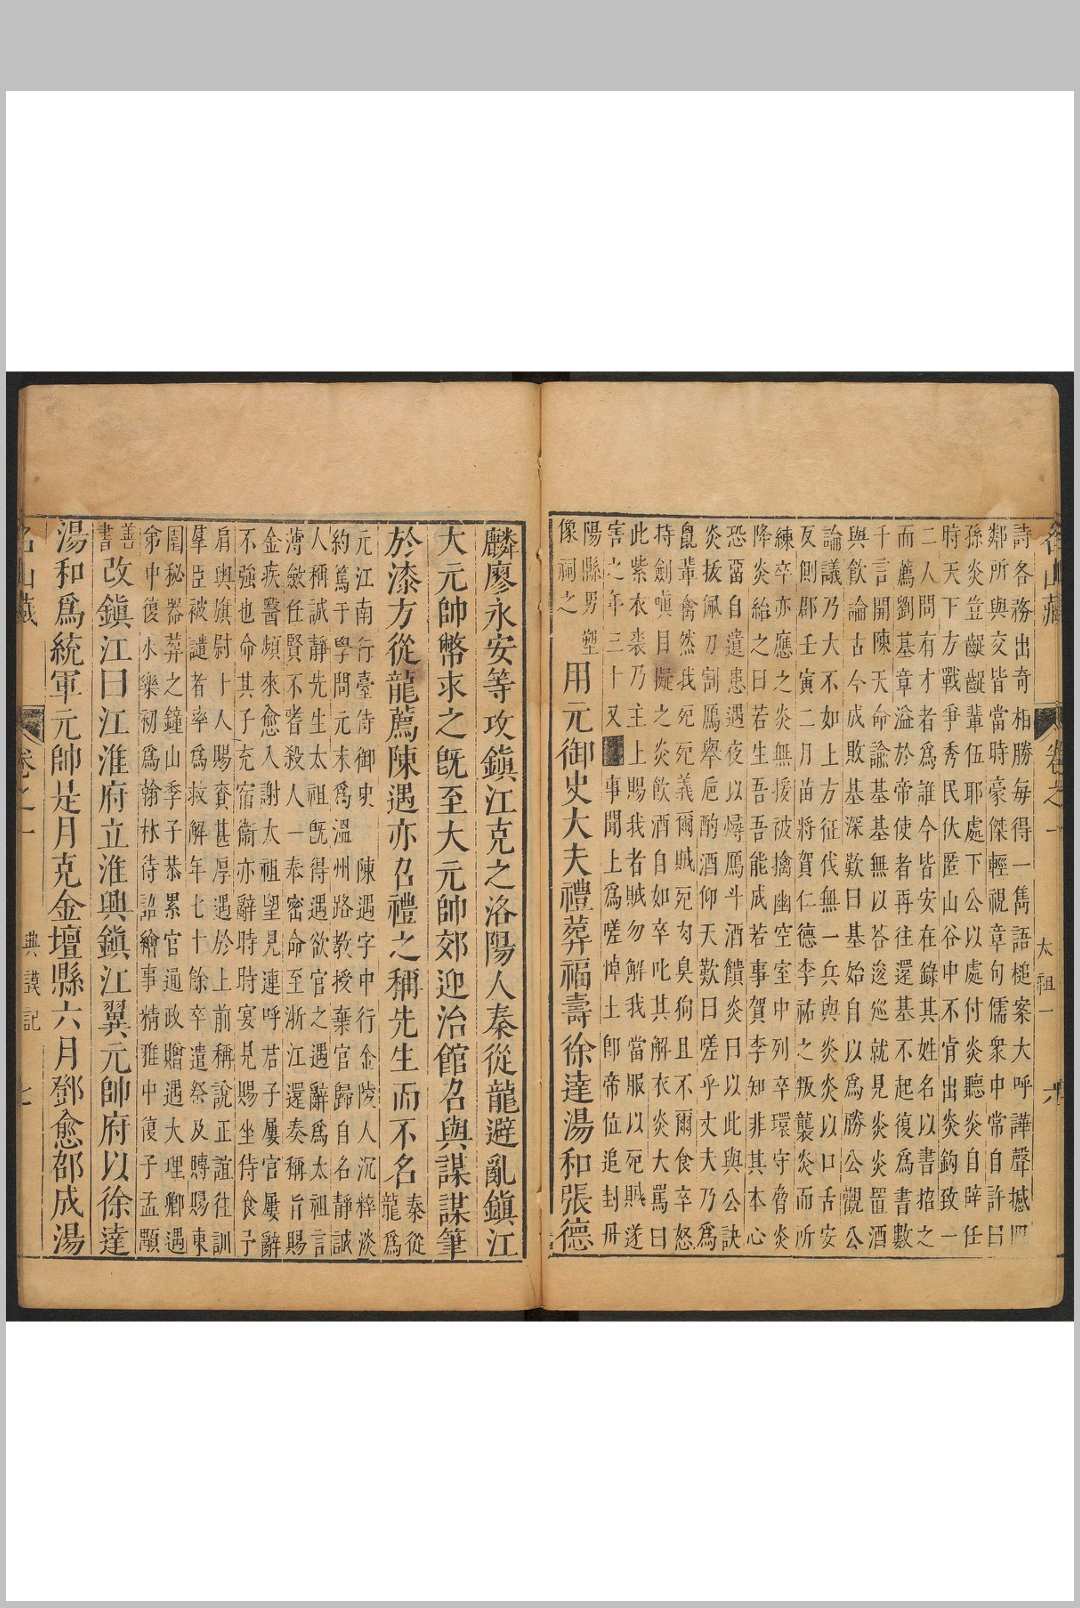 名山藏 卷之一 太祖一 六
詩各務出奇相勝每得一雋語槌案大呼譁聲撼
鄰所與交皆當時豪傑輕視章句儒衆中常自許曰
孫炎豈齷齪輩伍耶處下公以處付炎聽炎自辟任
時天下方戰爭秀民伏匿山谷中不肯出炎鈎致一
二人問有才者爲誰今皆安在錄其姓名以書招之
而薦劉基章溢於帝使者再往還基不起復爲書數
千言開陳天命諭基基無以荅逡巡就見炎炎置酒
與飲論古今成敗基深歎曰基始自以爲勝公觀公
論議乃大不如上方征伐無一兵與炎炎以口舌安
反側郡壬寅二月苗將賀仁德李祐之叛襲炎而所
練卒亦應之炎無援被擒幽空室中列卒環守脅炎
降炎紿之曰若生吾吾能成若事賀李知非其本心
恐畱自遺患遇夜以燖鴈斗酒饋炎曰以此與公訣
炎拔佩刀割鴈舉巵酌酒仰天歎曰嗟乎丈夫乃爲
鼠輩禽然我死死義爾賊死肉臭狗且不爾食卒怒
持劍嗔目擬之炎飲酒自如卒叱其解衣炎大罵曰
此紫衣裘乃主上賜我者賊勿解我當服以死賊遂
害之年三十又事聞上爲嗟悼土卽帝位追封丹
陽縣男塑
像祠之
用元御史大夫禮葬福壽徐達湯和張德
麟廖永安等攻鎭江克之洛陽人秦從龍避亂鎭江
大元帥幣求之旣至大元帥郊迎治館召與謀謀筆
於漆方從龍薦陳遇亦召禮之稱先生而不名
秦從
龍爲
元江南行臺侍御史 陳遇字中行金陵人沉粹淡
約篤于學問元末爲溫州路教授棄官歸自名靜誠
人稱誠靜先生太祖旣得遇欲官之遇辭爲太祖言
薄斂任賢不嗜殺人一奉密命至浙江還奏稱旨賜
金疾醫頻來愈入謝太祖望見連呼君子屢官屢辭
不強也命其子充宿衞亦辭時時宴見賜坐侍食予
肩輿旗尉十人賜賚甚厚遇於上前稱說正誼往訓
羣臣被譴者率爲救解年七十餘卒遣祭及賻賜東
園秘器葬之鐘山季子恭累官通政贈遇大理卿遇
弟中復木樂初爲翰林待詔繪事精雅中復子孟顒
善
書
改鎭江曰江淮府立淮興鎭江翼元帥府以徐達
湯和爲統軍元帥是月克金壇縣六月鄧愈邵成湯
名山藏 卷之一 典謨記 七